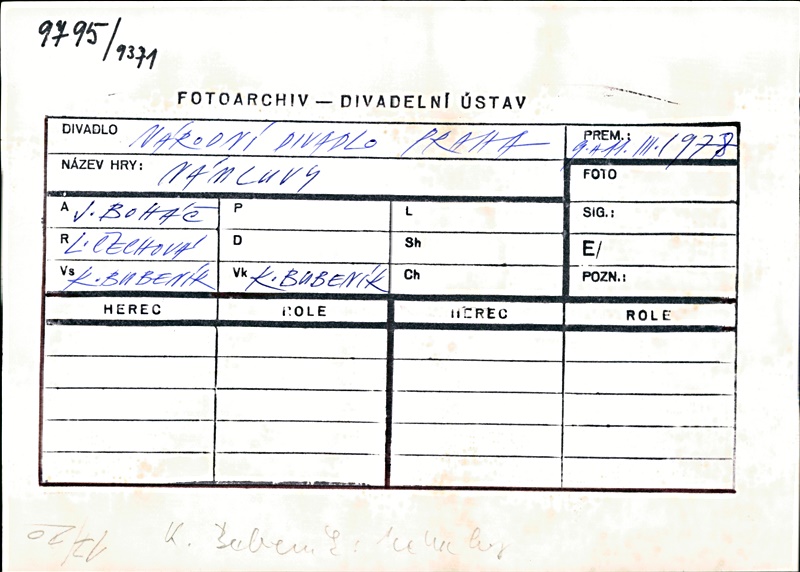 9795/9371
FOTOARCHIV — DIVADELNÍ ÚSTAV
DIVADLO NÁRODNÍ DIVADLO PRAHA PREM.: 9. a 11. III. 1978
NÁZEV HRY: NÁMLUVY FOTO
A J. BOHÁČ P L SIG.:
R L. ČECHOVÁ D Sh E/
Vs K. BUBENÍK Vk K. BUBENÍK Ch POZN.:
HEREC ROLE HEREC ROLE
17/20 K. Bubeník: